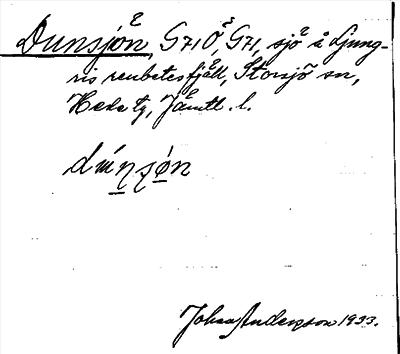 Dunsjön, G71Ö, G71, sjö å Ljung-
ris renbetesfjäll, Storsjö sn,
Hede tg, Jämtl. l.
dúnsjön
Johan Anderson 1933.